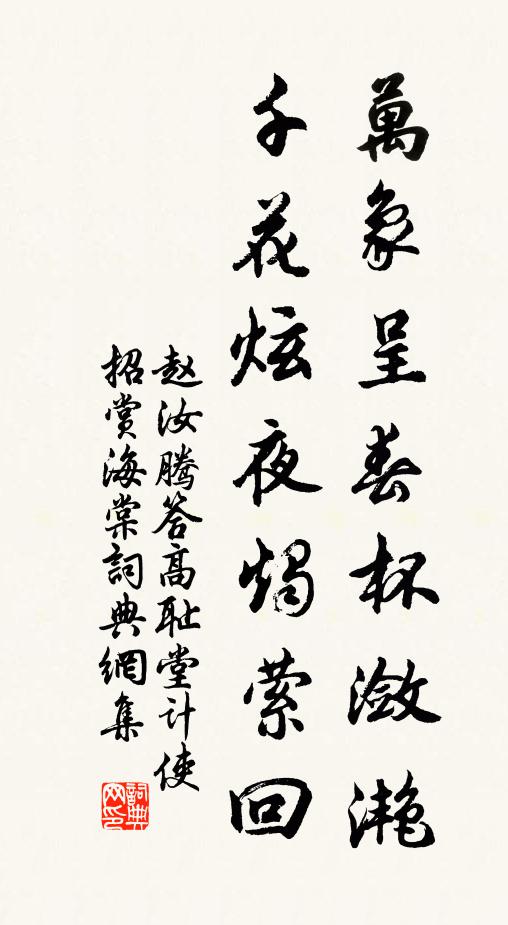 萬象呈春杯潋灧
千花炫夜燭萦回
赵汝腾答高耻堂計使
招赏海棠詞典網集
詞典网印